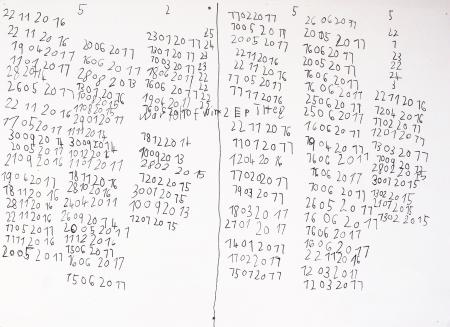 5
2
22 11 20 16
22 11 20 16
19 04 20 17
11 01 20 17
26 05 20 17
22 11 20 16
17 05 20 17
30 09 20 14
20 05 20 17
21 09 20 16
19 06 20 17
18 11 20 16
28 11 20 16
22 11 20 16
17 05 20 17
17 11 20 16
20 05 20 17
20 06 20 17
16 06 20 17
28 08 20 13
29 01 20 17
11 11 20 14
30 09 20 14
10 12 20 14
11 01 20 17
18 11 20 16
28 10 20 16
24 04 20 17
26 09 20 14
26 05 20 17
11 12 20 16
15 06 20 17
16 06 20 17
15 06 20 17
23 01 20 17
13 01 20 17
10 03 20 17
18 06 20 17
16 06 20 17
19 06 20 17
25
24
23
22
22
23
18 12 20 14
10 09 20 13
28 02 20 15
12 02 20 15
30 01 20 15
10 09 20 13
12 01 20 15
5
5
17 02 20 17
10 05 20 17
20 05 20 17
22 11 20 16
22 11 20 16
17 05 20 17
17 11 20 16
22 11 20 16
11 01 20 17
12 04 20 16
17 02 20 17
19 03 20 17
18 03 20 17
27 01 20 17
14 01 20 17
17 02 20 17
15 01 20 17
26 06 20 17
20 05 20 17
16 06 20 17
20 05 20 17
16 06 20 17
25 06 20 17
25 06 20 17
16 06 20 17
19 04 20 17
16 06 20 17
16 06 20 17
10 06 20 17
26 05 20 17
16 06 20 17
16 06 20 17
10 06 20 17
22 11 20 16
12 03 20 17
12 03 20 17
22
1
23
22
24
3
22 11 20 16
12 04 20 16
17 02 20 17
12 01 20 17
10 09 20 13
28 02 20 15
30 01 20 15
12 01 20 15
13 02 20 15